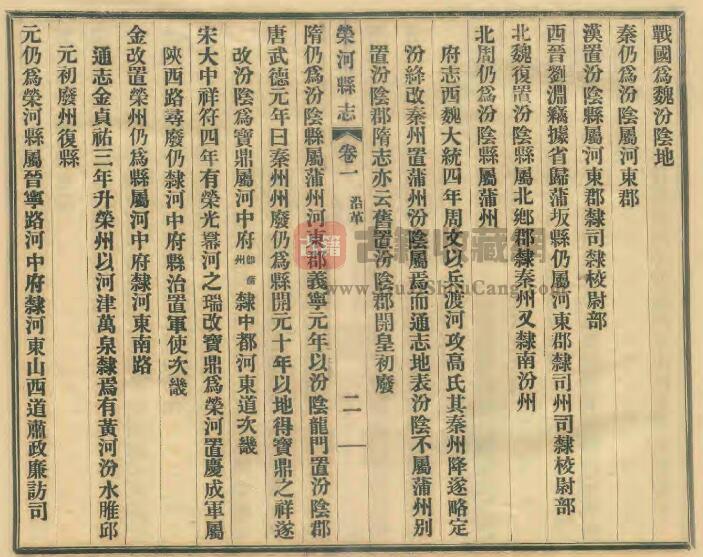 戰國爲魏汾陰地
秦仍爲汾陰屬河東郡
漢置汾陰縣屬河東郡隸司隸校尉部
西晉劉淵竊據省歸蒲坂縣仍屬河東郡隸司州司隸校尉部
北魏復置汾陰縣屬北鄉郡隸秦州又隸南汾州
北周仍爲汾陰縣屬蒲州
府志西魏大統四年周文以兵渡河攻高氏其秦州降遂略定
汾絳改秦州置蒲州汾陰屬焉而通志地表汾陰不屬蒲州别
置汾陰郡隋志亦云舊置汾陰郡開皇初廢
榮河縣志
卷一
沿革
二
隋仍爲汾陰縣屬蒲州河東郡義寧元年以汾陰龍門置汾陰郡
唐武德元年曰秦州州廢仍爲縣開元十年以地得寶鼎之祥遂
改汾陰爲寶鼎屬河中府
卽蒲州
隸中都河東道次畿
宋大中祥符四年有榮光羃河之瑞改寶鼎爲榮河置慶成軍屬
陝西路尋廢仍隸河中府縣治置軍使次畿
金改置榮州仍爲縣屬河中府隸河東南路
通志金貞祐三年升榮州以河津萬泉隸焉有黃河汾水脽邱
元初廢州復縣
元仍爲榮河縣屬晉寧路河中府隸河東山西道肅政廉訪司
古籍
古籍收藏網
www.GuJiShouCang.com